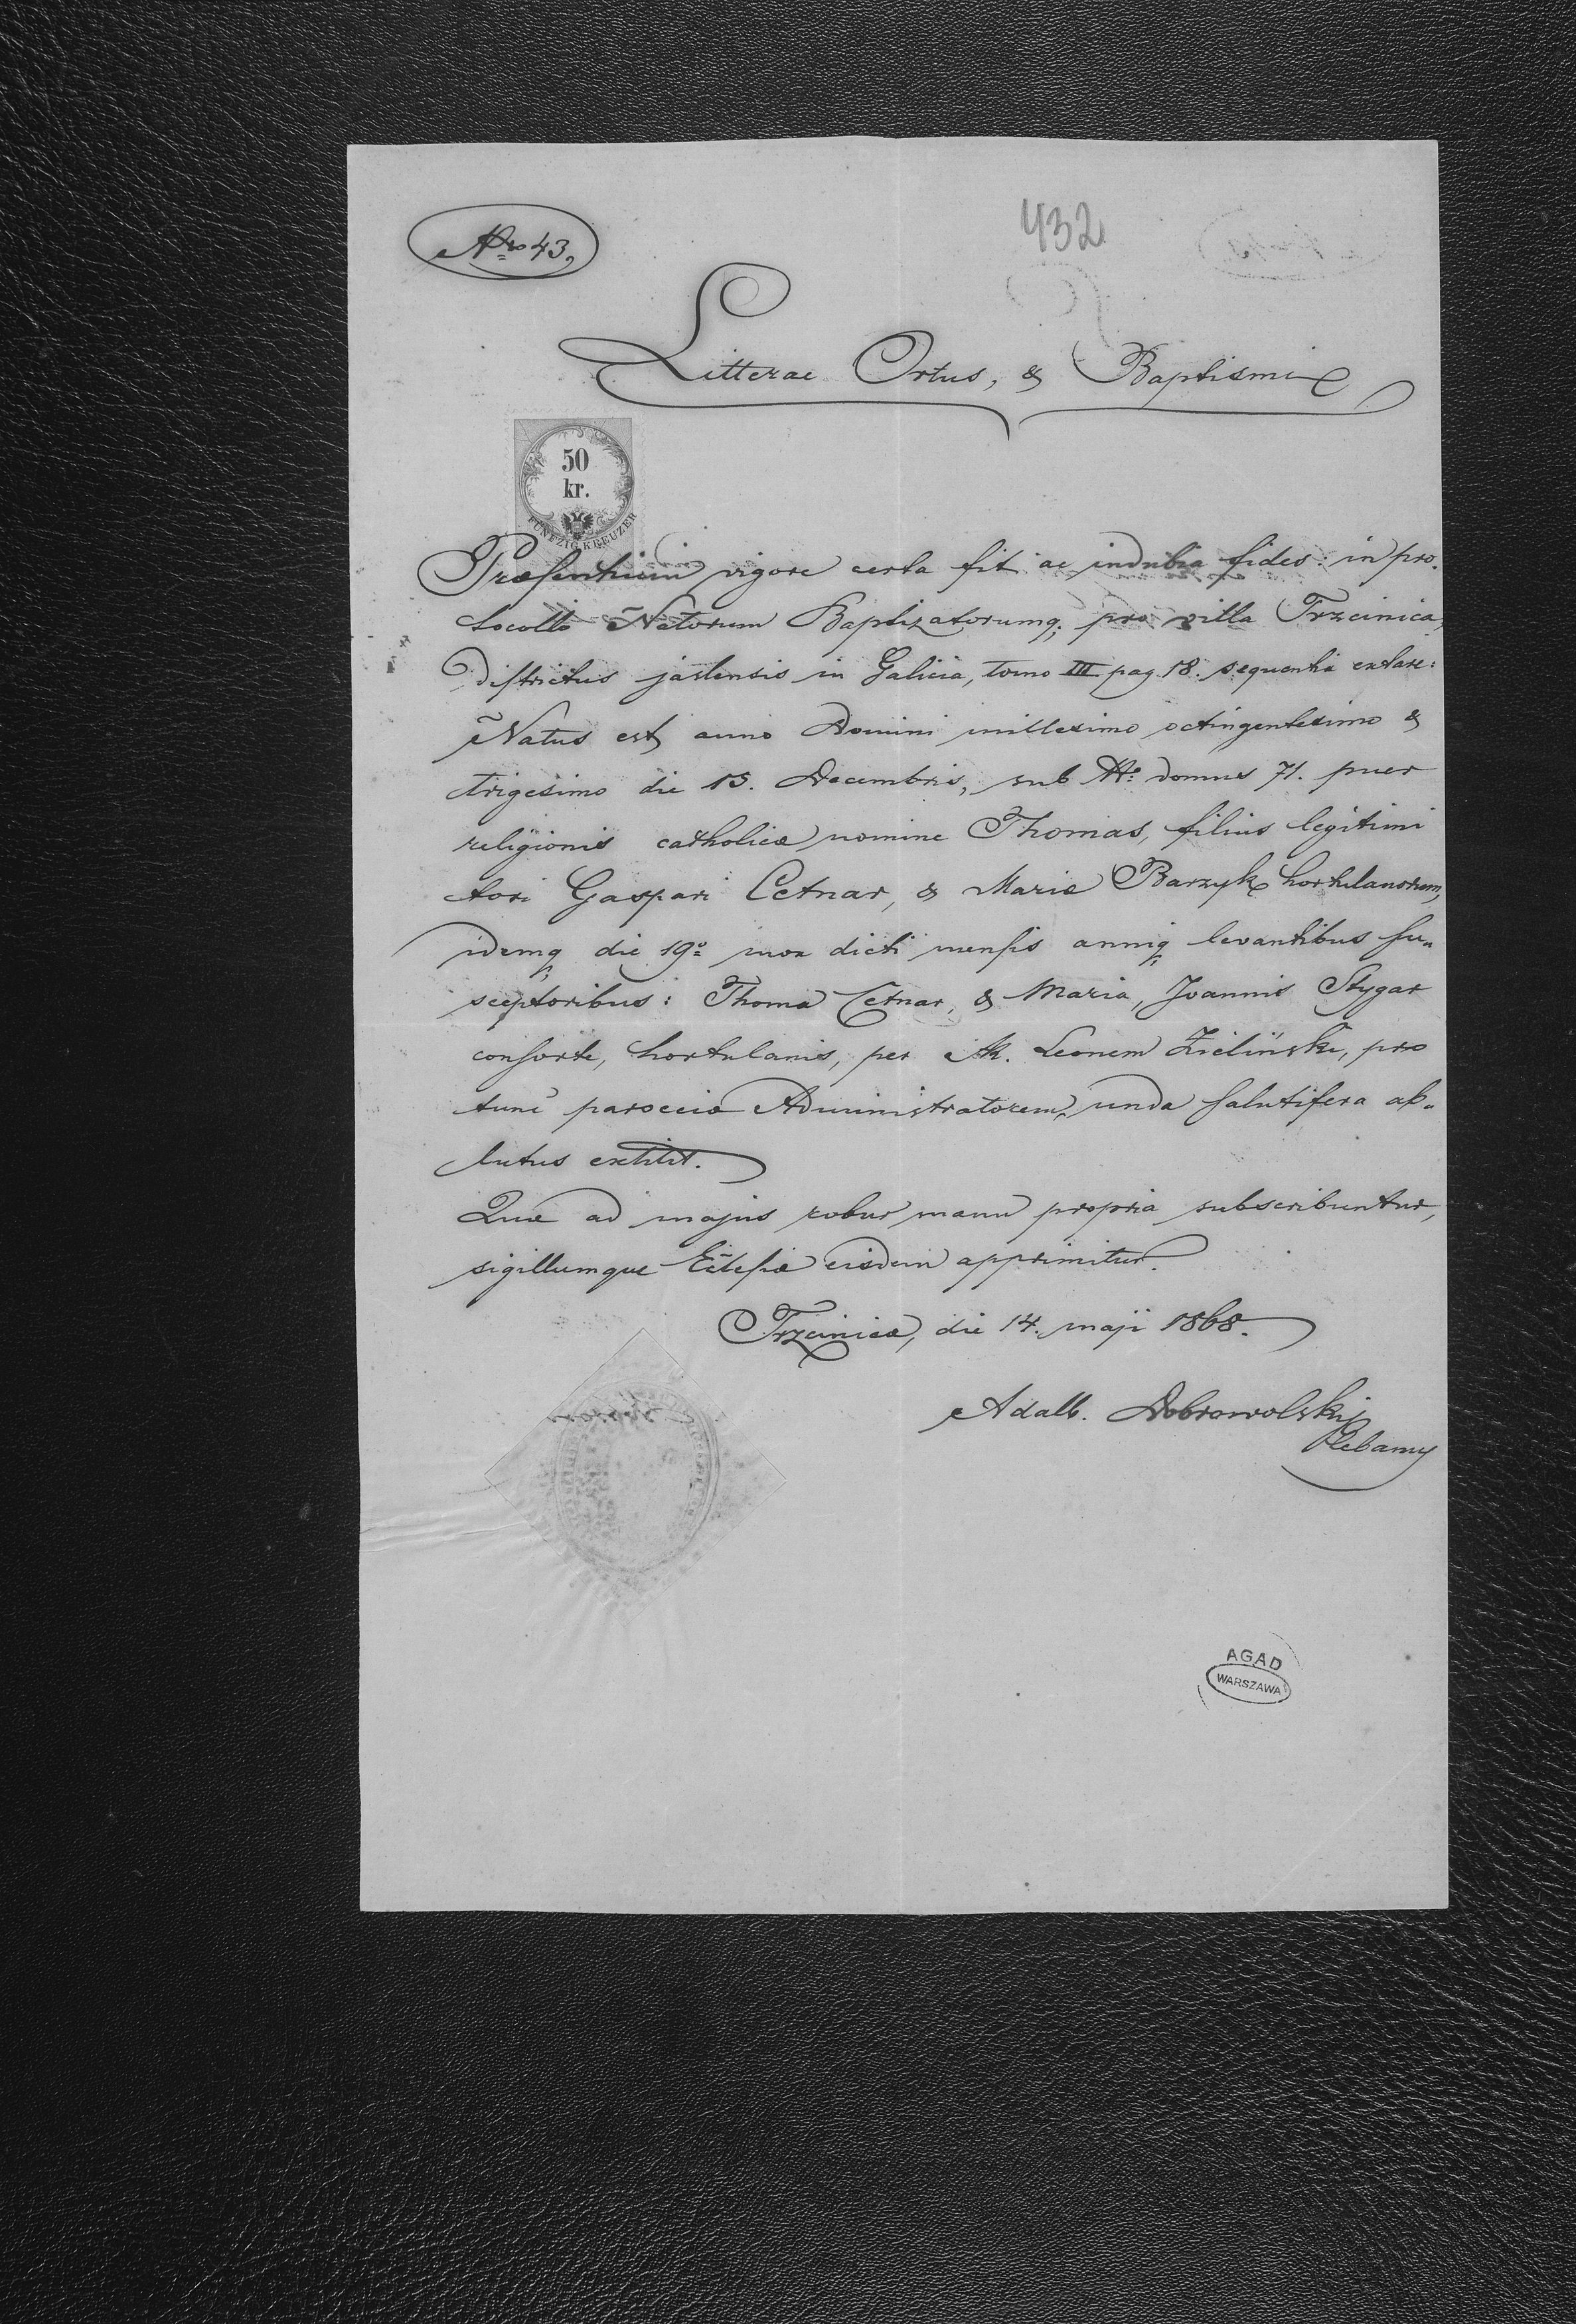 Nro 43,
432
Litterae Ortus, & Baptismi
50
kr.
FÜNFZIG KREUZER
Præsentium vigore certa fit ac indubia fides: in pro-
tocollo Natorum Baptizatorumq; pro villa Trzcinica,
districtus jaslensis in Galicia, tomo III pag 18. sequentia extare:
Natus est anno Domini millesimo octingentesimo &
trigesimo die 13. Decembris, sub No domus 71. puer
religionis catholicæ nomine Thomas, filius legitimi
tori Gaspari Cetnar, & Mariæ Barzyk hortulanorum,
idemq; die 19o mox dicti mensis anniq; levantibus su-
sceptoribus: Thoma Cetnar, & Maria, Joannis Stygar
consorte, hortulanis, per R. Leonem Zieliński, pro
tunc parœciæ Administratorem, unda salutifera ab-
lutus extitit.
Quæ ad majus robur manu propria subscribuntur,
sigillumque Ecclesiæ eisdem apprimitur.
Trzcinica, die 14. maji 1868.
Adalb. Dobrowolski
Plebanus
AGAD
WARSZAWA